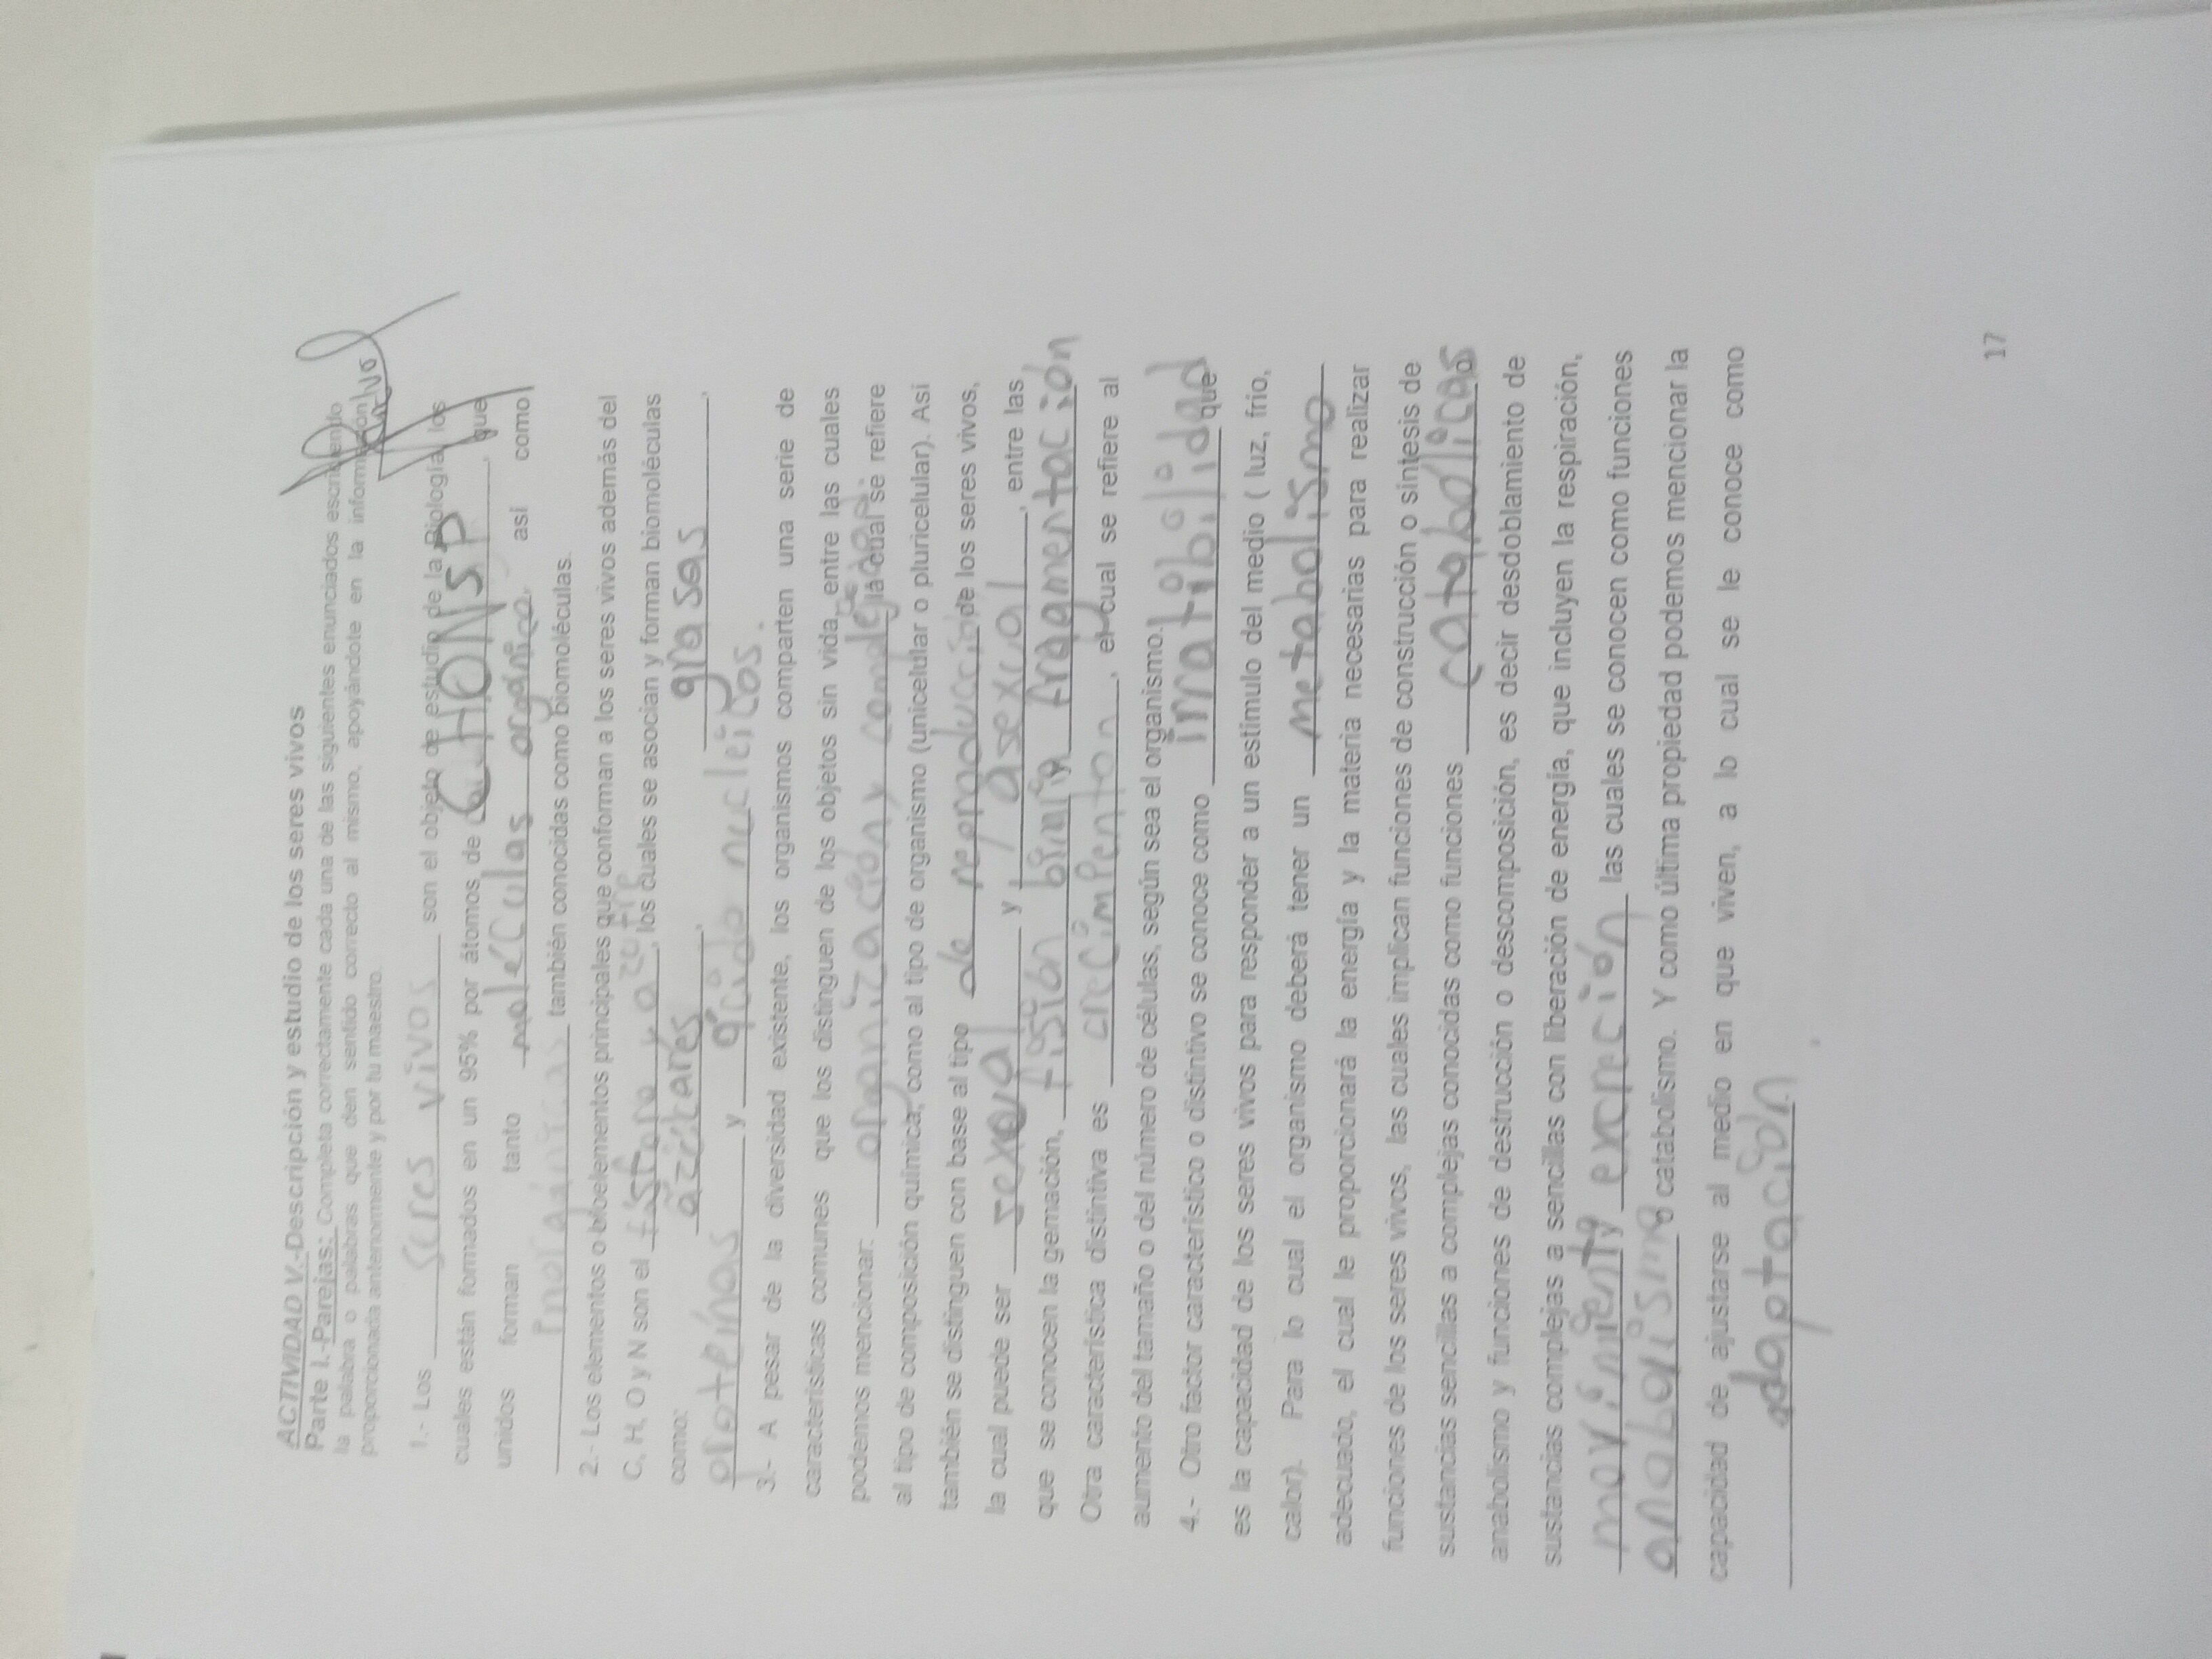 ACTIVIDAD V.-Descripción y estudio de los seres vivos
Parte I.-Parejas: Completa correctamente cada una de las siguientes enunciados escribiendo
la palabra o palabras que den sentido correcto al mismo, apoyándote en la información
proporcionada anteriormente y por tu maestro.
1.- Los seres vivos son el objeto de estudio de la Biología, los
cuales están formados en un 95% por átomos de CHONSP, que
unidos forman tanto moléculas orgánica, así como
inorgánicas también conocidas como biomoléculas.
2.- Los elementos o bioelementos principales que conforman a los seres vivos además del
C, H, O y N son el fósforo y azufre, los cuales se asocian y forman biomoléculas
como: azúcares, grasas,
proteínas y ácido nucleicos.
3.- A pesar de la diversidad existente, los organismos comparten una serie de
características comunes que los distinguen de los objetos sin vida, entre las cuales
podemos mencionar: organización y complejidad. la cual se refiere
al tipo de composición química, como al tipo de organismo (unicelular o pluricelular). Así
también se distinguen con base al tipo de reproducción de los seres vivos,
la cual puede ser sexual y asexual, entre las
que se conocen la gemación, fisión binaria fragmentación
Otra característica distintiva es crecimiento, el cual se refiere al
aumento del tamaño o del número de células, según sea el organismo.
4.- Otro factor característico o distintivo se conoce como que
es la capacidad de los seres vivos para responder a un estímulo del medio ( luz, frío,
calor). Para lo cual el organismo deberá tener un metabolismo
adecuado, el cual le proporcionará la energía y la materia necesarias para realizar
funciones de los seres vivos, las cuales implican funciones de construcción o síntesis de
sustancias sencillas a complejas conocidas como funciones catabólicas o
anabolismo y funciones de destrucción o descomposición, es decir desdoblamiento de
sustancias complejas a sencillas con liberación de energía, que incluyen la respiración,
movimiento y excreción las cuales se conocen como funciones
anabolismo o catabolismo. Y como última propiedad podemos mencionar la
capacidad de ajustarse al medio en que viven, a lo cual se le conoce como
adaptación.
17